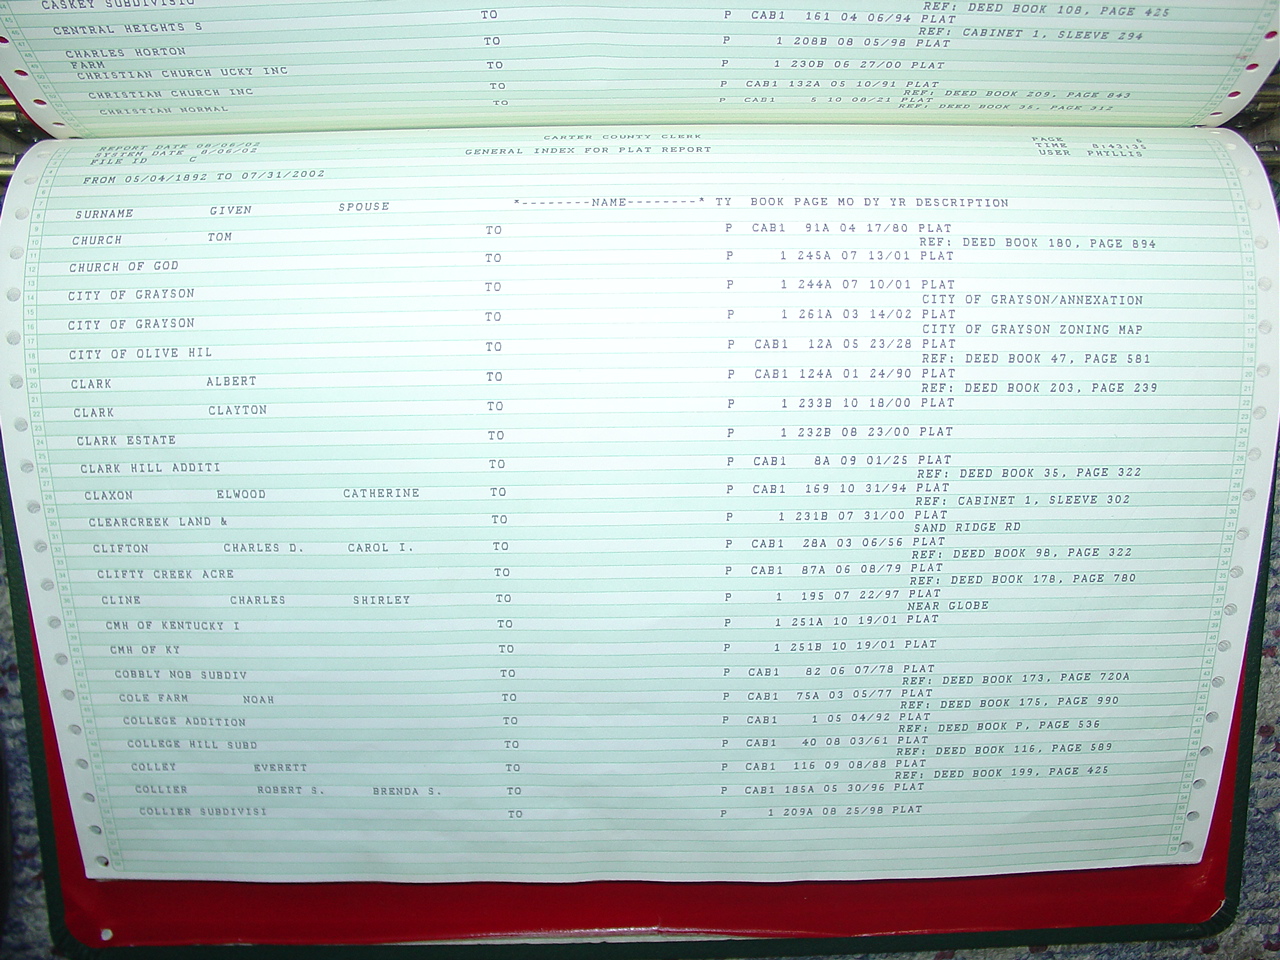 CASKEY SUBDIVISIO TO REF: DEED BOOK 108, PAGE 425
P CAB1 161 04 06/94 PLAT
CENTRAL HEIGHTS S TO REF: CABINET 1, SLEEVE 294
P 1 208B 08 05/98 PLAT
CHARLES HORTON FARM TO P 1 230B 06 27/00 PLAT
CHRISTIAN CHURCH UCKY INC TO P CAB1 132A 05 10/91 PLAT
CHRISTIAN CHURCH INC REF: DEED BOOK 209, PAGE 843
TO P CAB1 5 10 08/21 PLAT
CHRISTIAN NORMAL REF: DEED BOOK 35, PAGE 312
CARTER COUNTY CLERK
REPORT DATE 08/06/02 PAGE 6
SYSTEM DATE 8/06/02 GENERAL INDEX FOR PLAT REPORT TIME 8:43:35
FILE ID C USER PHYLLIS
FROM 05/04/1892 TO 07/31/2002
SURNAME GIVEN SPOUSE *--------NAME--------* TY BOOK PAGE MO DY YR DESCRIPTION
CHURCH TOM TO P CAB1 91A 04 17/80 PLAT
REF: DEED BOOK 180, PAGE 894
CHURCH OF GOD TO P 1 245A 07 13/01 PLAT
CITY OF GRAYSON TO P 1 244A 07 10/01 PLAT
CITY OF GRAYSON/ANNEXATION
CITY OF GRAYSON TO P 1 261A 03 14/02 PLAT
CITY OF GRAYSON ZONING MAP
CITY OF OLIVE HIL TO P CAB1 12A 05 23/28 PLAT
REF: DEED BOOK 47, PAGE 581
CLARK ALBERT TO P CAB1 124A 01 24/90 PLAT
REF: DEED BOOK 203, PAGE 239
CLARK CLAYTON TO P 1 233B 10 18/00 PLAT
CLARK ESTATE TO P 1 232B 08 23/00 PLAT
CLARK HILL ADDITI TO P CAB1 8A 09 01/25 PLAT
REF: DEED BOOK 35, PAGE 322
CLAXON ELWOOD CATHERINE TO P CAB1 169 10 31/94 PLAT
REF: CABINET 1, SLEEVE 302
CLEARCREEK LAND & TO P 1 231B 07 31/00 PLAT
SAND RIDGE RD
CLIFTON CHARLES D. CAROL I. TO P CAB1 28A 03 06/56 PLAT
REF: DEED BOOK 98, PAGE 322
CLIFTY CREEK ACRE TO P CAB1 87A 06 08/79 PLAT
REF: DEED BOOK 178, PAGE 780
CLINE CHARLES SHIRLEY TO P 1 195 07 22/97 PLAT
NEAR GLOBE
CMH OF KENTUCKY I TO P 1 251A 10 19/01 PLAT
CMH OF KY TO P 1 251B 10 19/01 PLAT
COBBLY NOB SUBDIV TO P CAB1 82 06 07/78 PLAT
REF: DEED BOOK 173, PAGE 720A
COLE FARM NOAH TO P CAB1 75A 03 05/77 PLAT
REF: DEED BOOK 175, PAGE 990
COLLEGE ADDITION TO P CAB1 1 05 04/92 PLAT
REF: DEED BOOK P, PAGE 536
COLLEGE HILL SUBD TO P CAB1 40 08 03/61 PLAT
REF: DEED BOOK 116, PAGE 589
COLLEY EVERETT TO P CAB1 116 09 08/88 PLAT
REF: DEED BOOK 199, PAGE 425
COLLIER ROBERT S. BRENDA S. TO P CAB1 185A 05 30/96 PLAT
COLLIER SUBDIVISI TO P 1 209A 08 25/98 PLAT